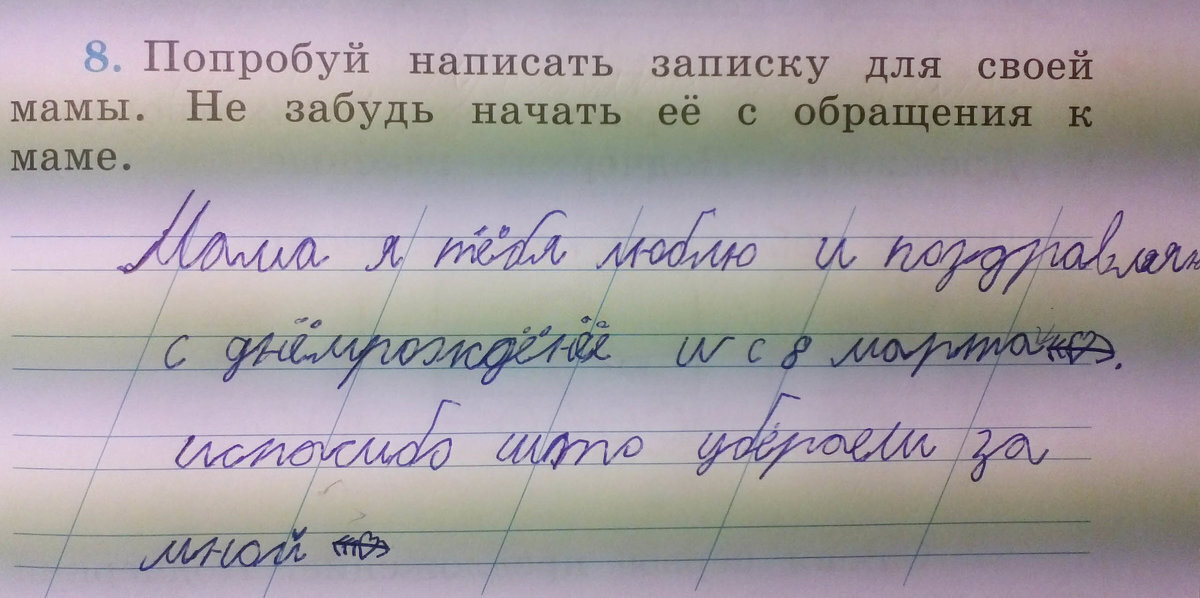 8. Попробуй написать записку для своей
мамы. Не забудь начать её с обращения к
маме.
Мама я тёбя люблю и поздравляю
с днёмрождёнёё и с 8 марта.
испосибо што убёраеш за
мной